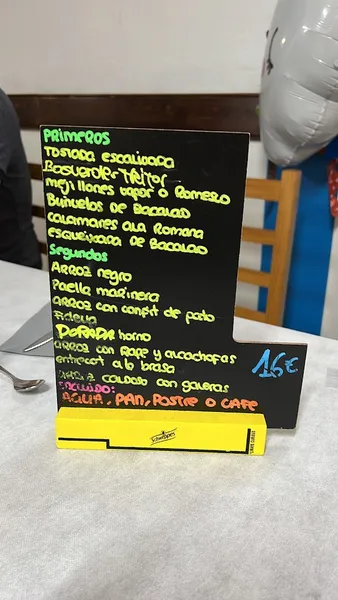 PRIMEROS
TOSTADA escalibada
mejillones vapor o Romero
Buñuelos DE BACALAO
calamares ala Romana
esqueixada DE Bacalao
Segundos
ARROZ negro
Paella marinera
ARROZ con confit de pato
Fideua
DORADA horno
arroz con Rape y alcachofas
entrecot a la brasa
arroz caldoso con galeras
INCLUIDO:
AGUA, PAN, POSTRE O CAFE
16€
Schweppes